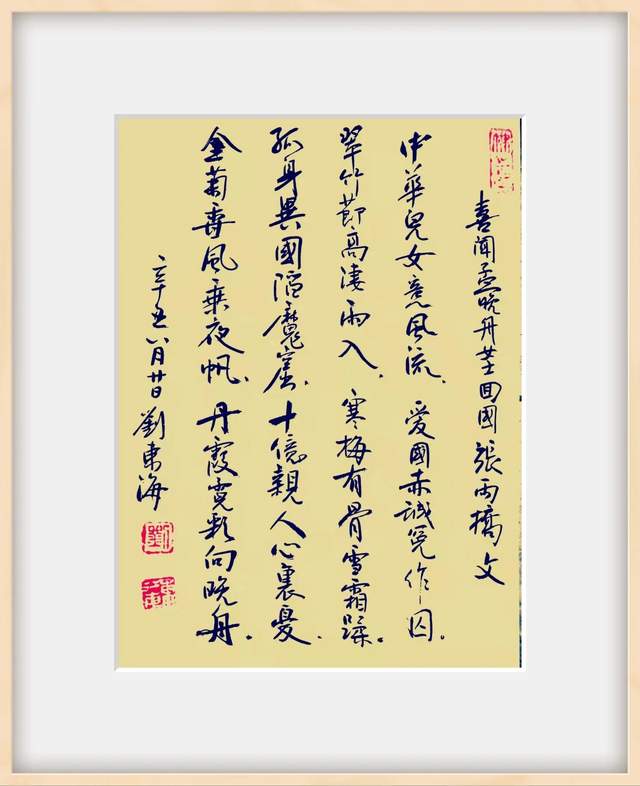 喜闻孟晚舟女士回國 張雨橋文
中華兒女意風流.愛國赤誠冤作囚。
翠竹節高凄雨入.寒梅有骨雪霜蹂。
孤身異國陷魔窟.十億親人心裏憂.
金菊風乘夜帆.丹霞霓彩向晚舟。
辛丑八月廿日劉東海